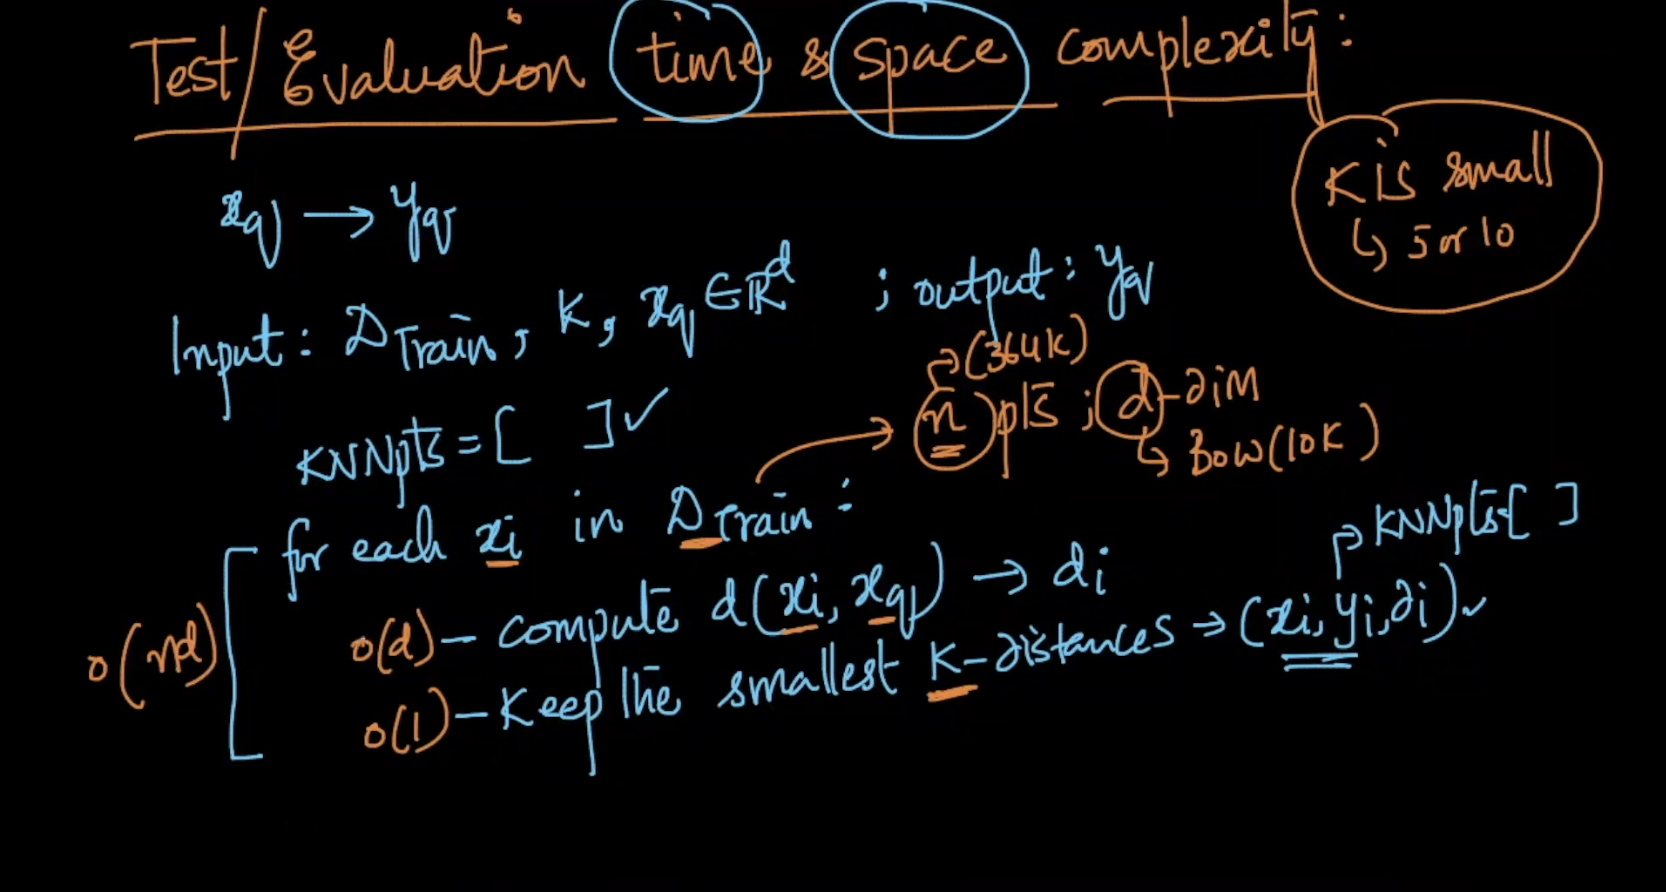 Test/Evaluation time & space complexity:
K is small
↳ 5 or 10
xq → yq
Input: DTrain, K, xq ∈ ℝ^d ; output: yq
(364K)
KNNpts = [ ] ✓
n pts ; d-dim
↳ BOW(10K)
for each xi in DTrain:
KNNpts[ ]
O(nd)
O(d) – compute d(xi, xq) → di
O(1) – Keep the smallest K-distances → (xi, yi, di) ✓